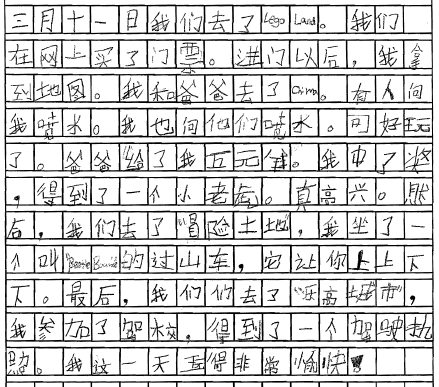 三月十一日我们去了Lego Land。我们
在网上买了门票。进门以后，我拿
到地图。我和爸爸去了。有人向
我喷水。我也向他们喷水。可好玩
了。爸爸给了我五元钱。我中了奖
，得到了一个小老虎。真高兴。然
后，我们去了“冒险土地”，我坐了一
个叫的过山车，它让你上上下
下。最后，我们们去了“乐高城市”，
我参加了驾校，得到了一个驾驶执
照。我这一天过得非常愉快！